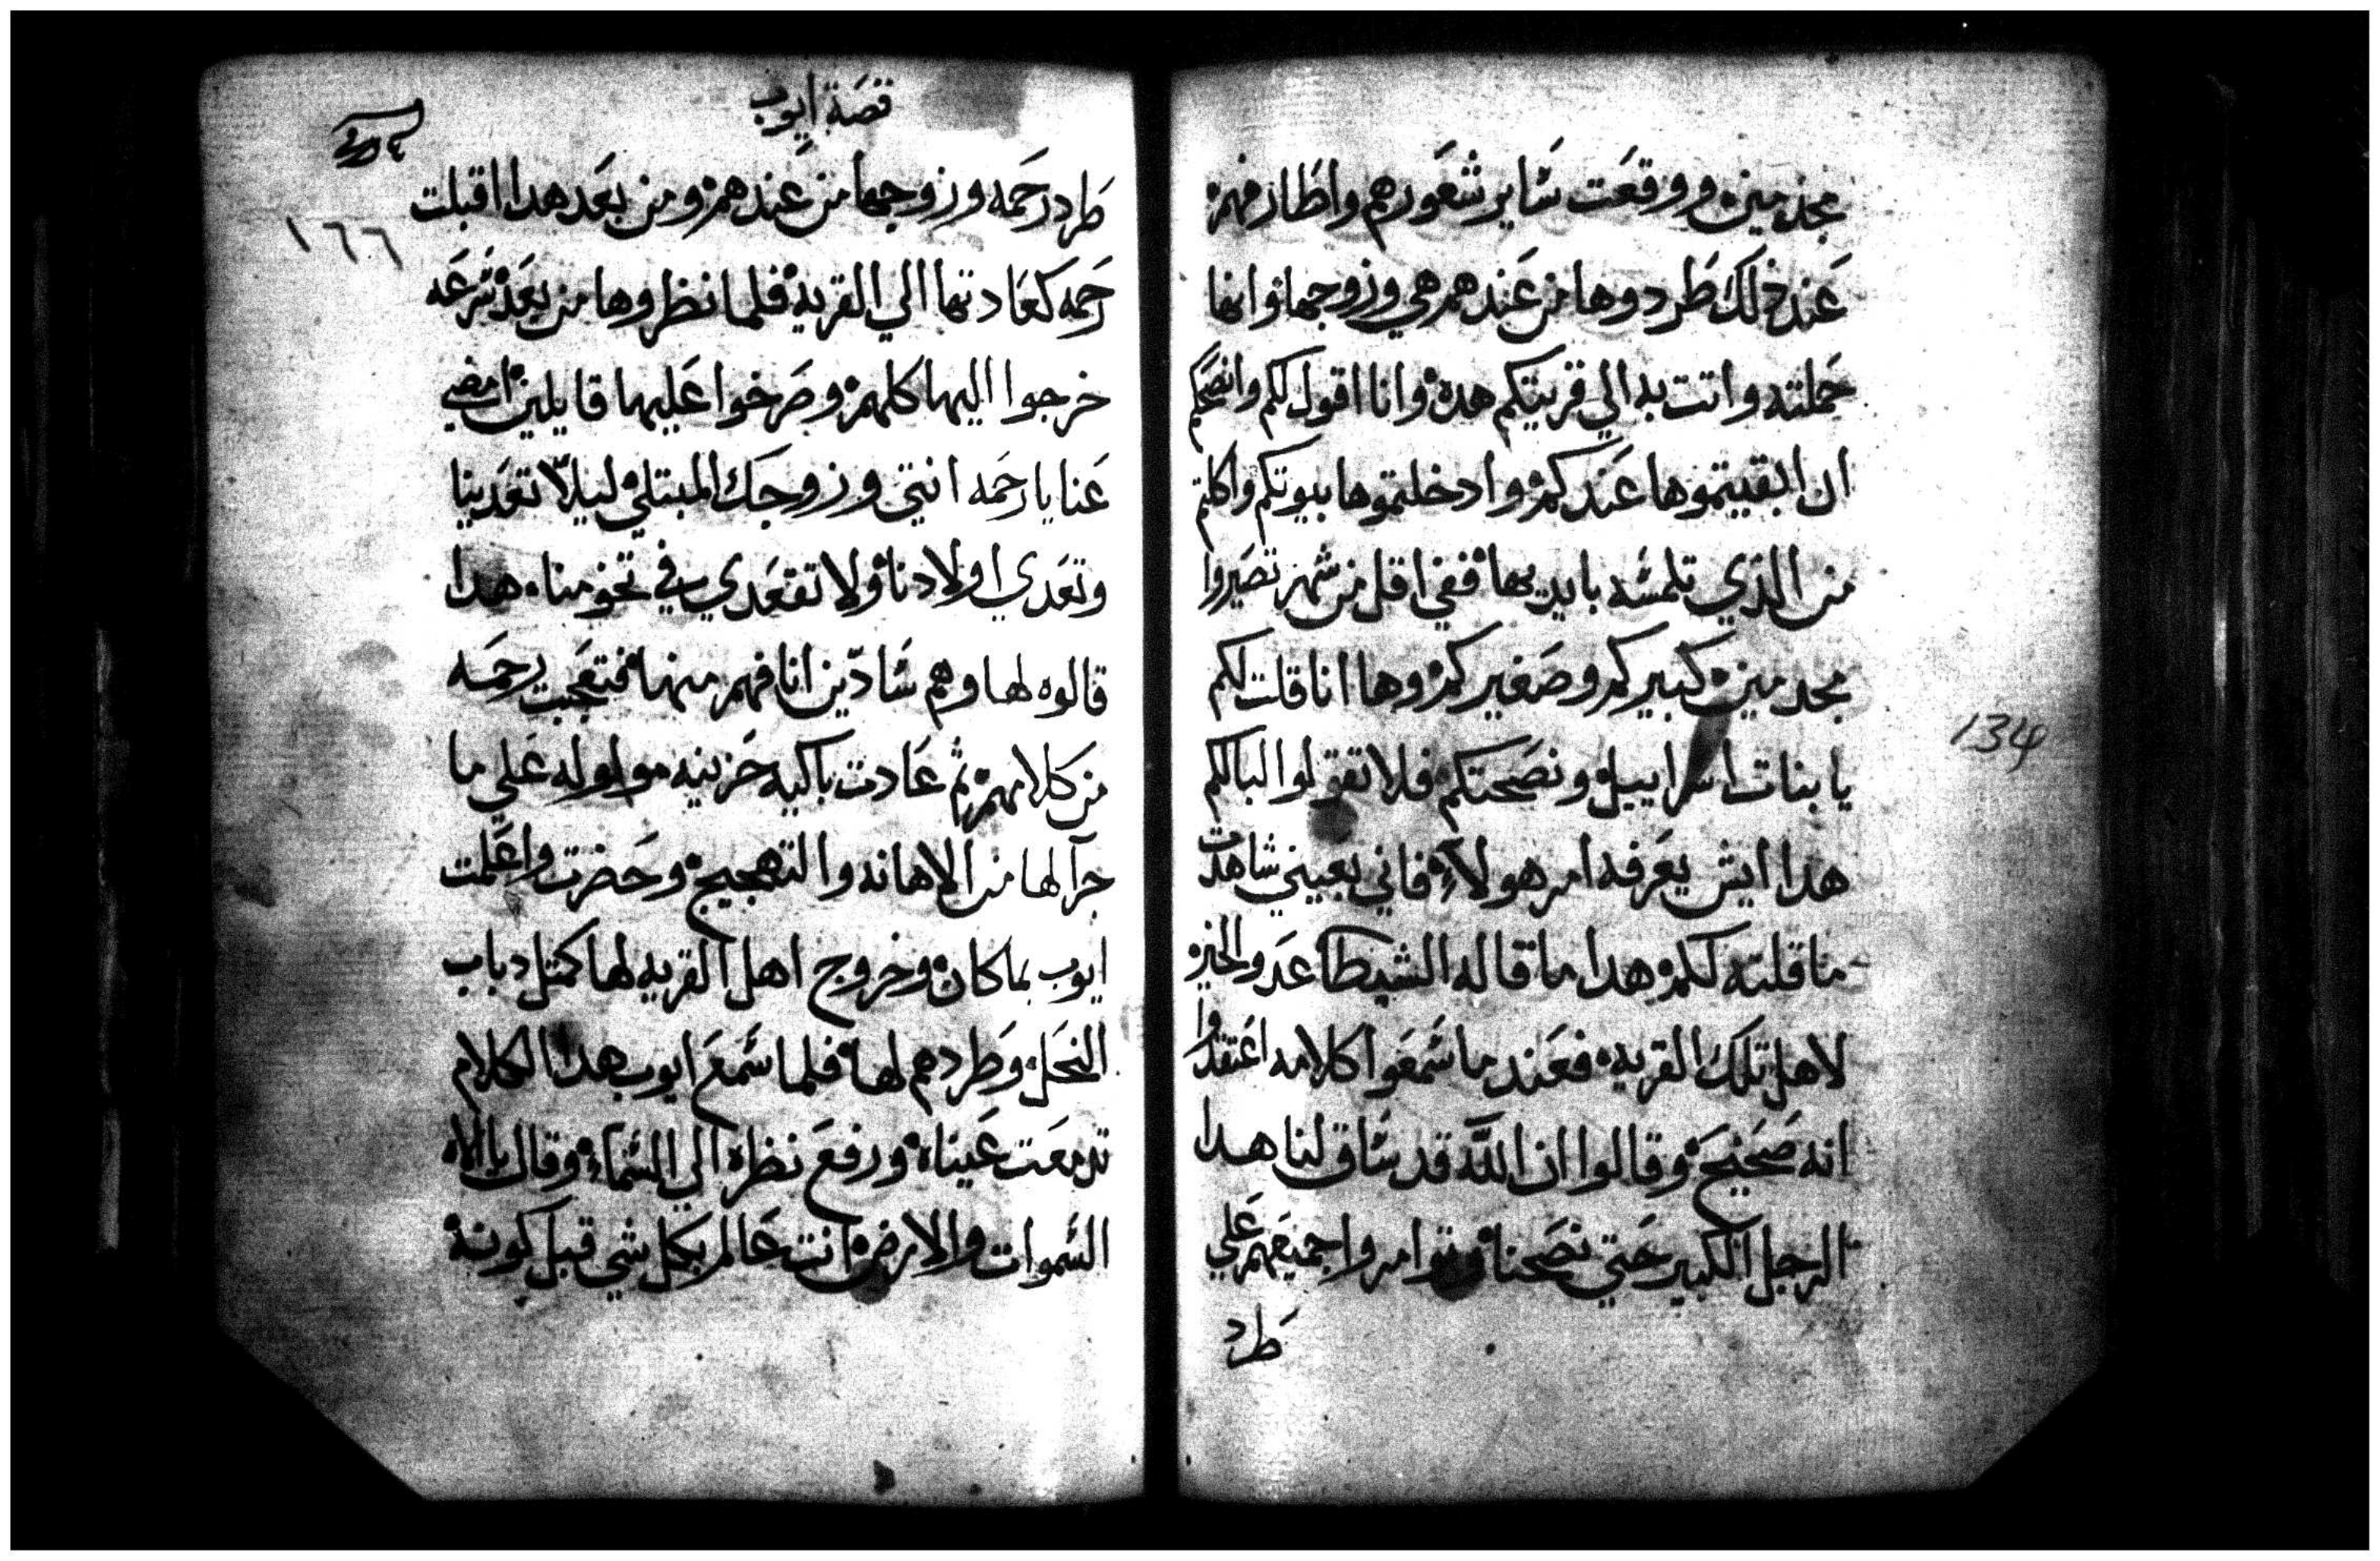 مجدمين ووقعت ساير شعورهم واظافرهم
عند ذلك طردوها من عندهم هي وزوجها وانها
حملته واتت به الي قريتكم هده وانا اقول لكم وانصحكم
ان ابقيتموها عندكم وادخلتموها بيوتكم واكلتم
من الذي تلمسه بايديها ففي اقل من شهر تصيروا
مجدمين كبيركم وصغيركم وها انا قلت لكم
يا بنات اسراييل ونصحتكم فلا تقولوا لبالكم
هدا ايش يعرفه امر هولاء فاني بعيني شاهدت
ما قلته لكم هدا ما قاله الشيطا عدو الخير
لاهل تلك القريه فعند ما سمعوا كلامه اعتقدوا
انه صحيح وقالوا ان الله قد ساق لنا هدا
الرجل الكبير حتي نصحنا وتوامروا جميعهم علي
طرد
134
قصة ايوب
١٦٦
طرد رحمه وزوجها من عندهم ومن بعد هدا اقبلت
رحمه كعادتها الي القريه فلما نظروها من بعد سرعه
خرجوا اليها كلهم وصرخوا عليها قايلين امضي
عنا يا رحمه انتي وزوجك المبتلي ليلا تعدينا
وتعدي اولادنا ولا تقعدي في تخومنا هدا
قالوه لها وهم سادين انافهم منها فتعجبت رحمه
من كلامهم ثم عادت باكيه حزينه مولوله علي ما
جرا لها من الاهانه والتهجيج وحضرت واعلمت
ايوب بما كان وخروج اهل القريه لها كمثل دباب
النحل وطردهم لها فلما سمع ايوب هدا الكلام
تدمعت عيناه ورفع نظره الي السماء وقال يا الاه
السموات والارض انت عالم بكل شي قبل كونه